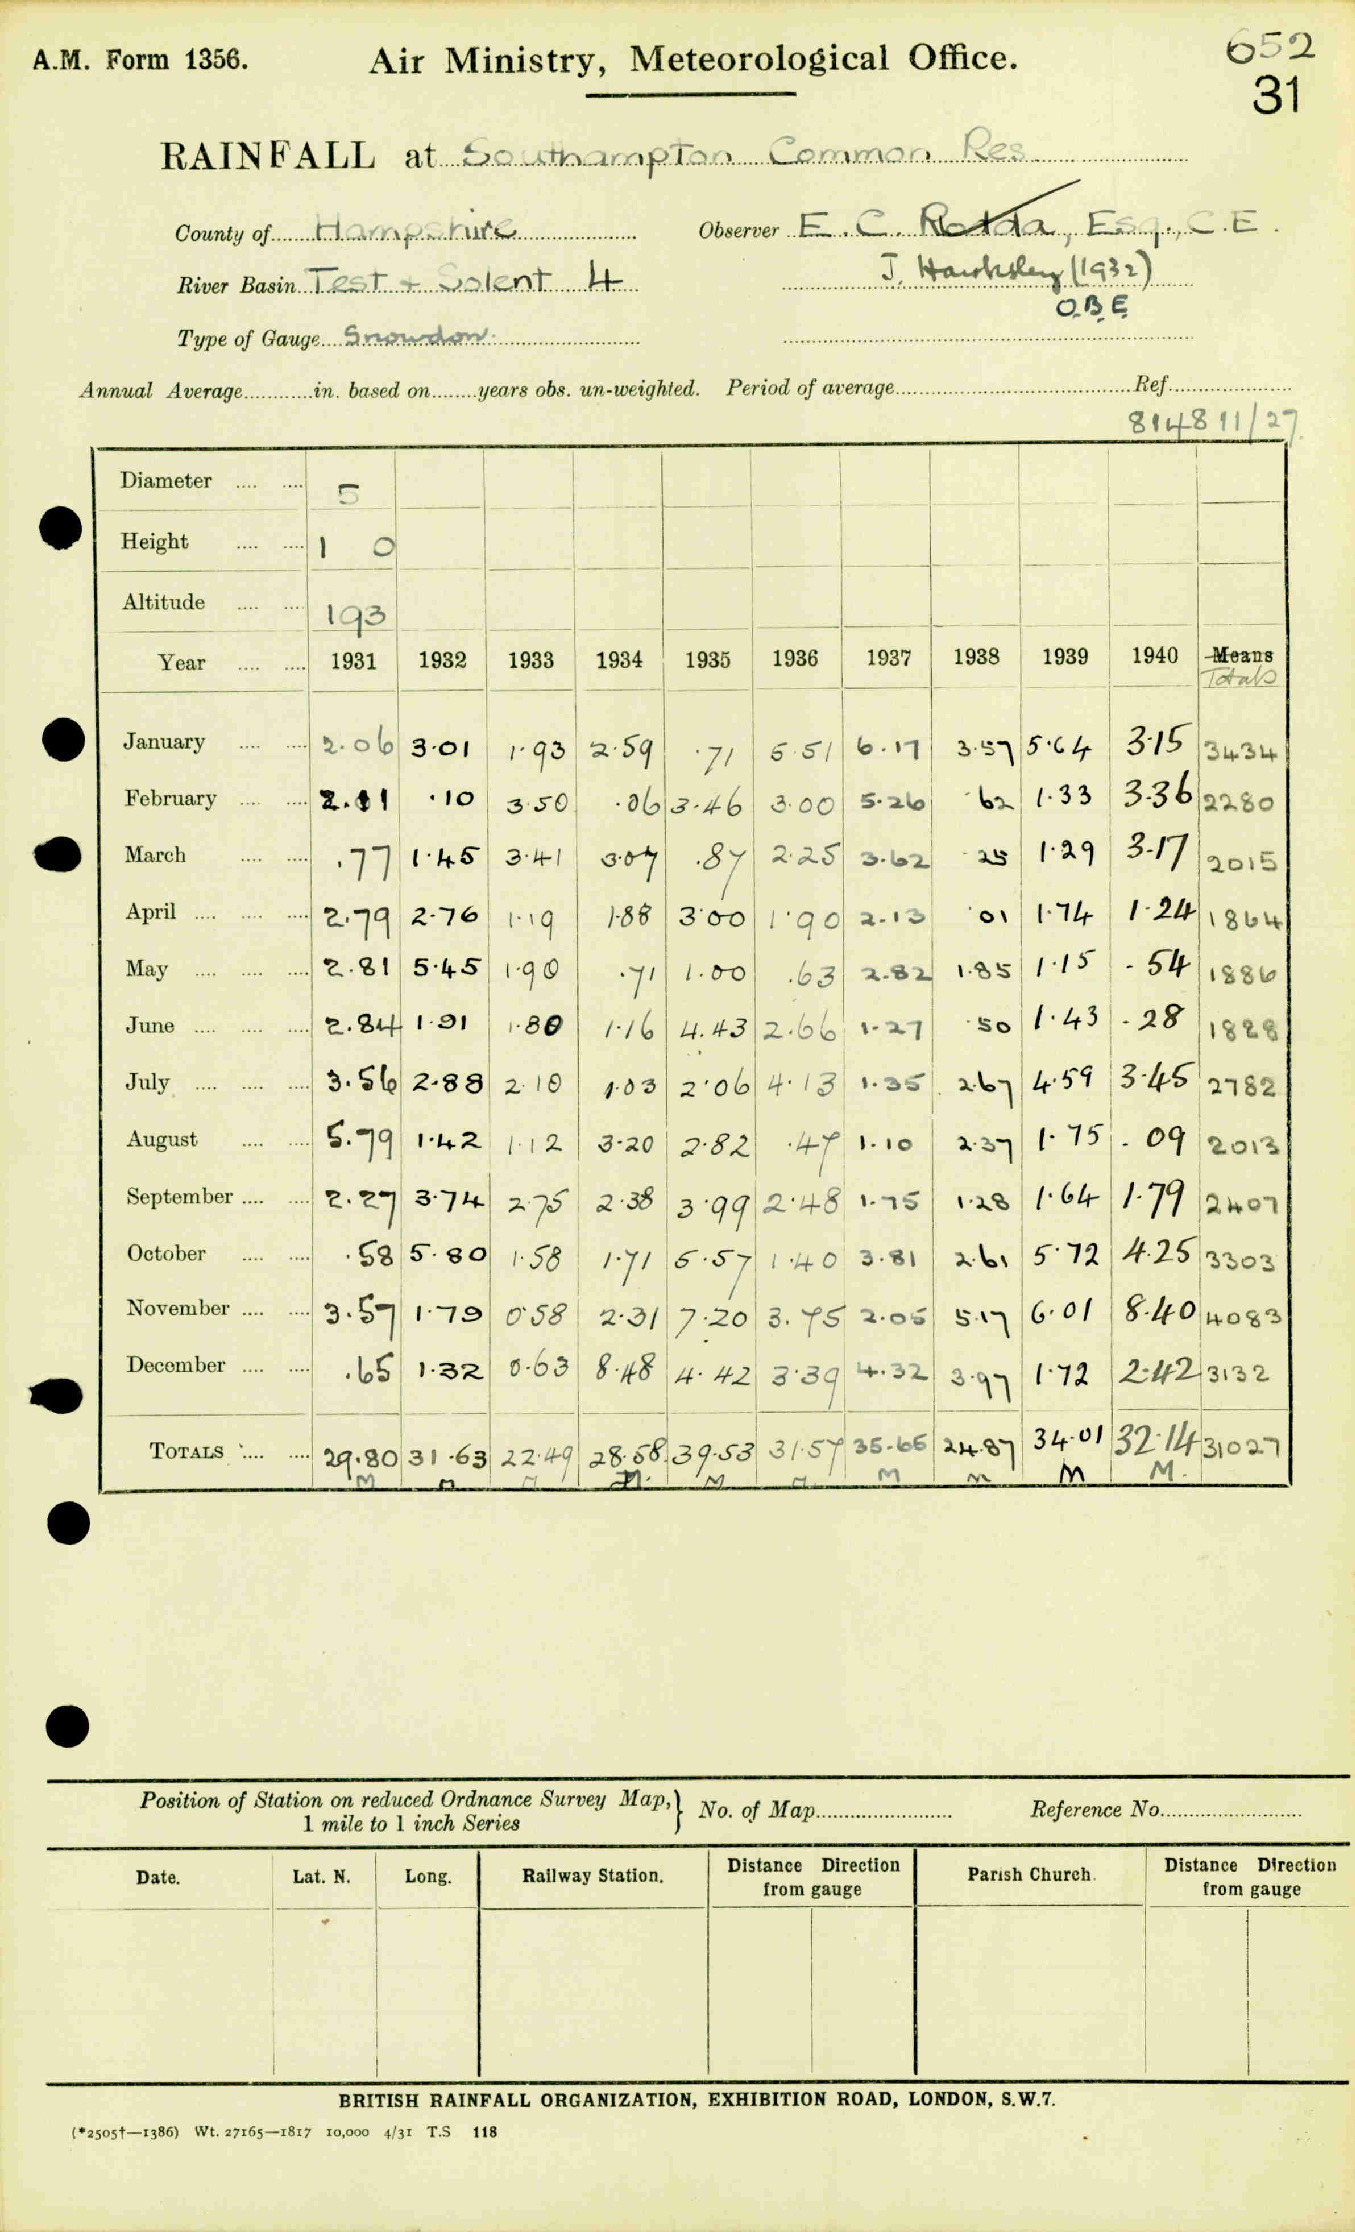 A.M. Form 1356.
Air Ministry, Meteorological Office.
652
31
RAINFALL at Southampton Common Res
County of Hampshire Observer E. C. Rodda, Esq., C.E.
River Basin Test + Solent 4 J. Hawksley (1932)
O.B.E
Type of Gauge Snowdon
Annual Average in. based on years obs. un-weighted. Period of average Ref
814811/27.
Diameter 5
Height 1 0
Altitude 193
Year 1931 1932 1933 1934 1935 1936 1937 1938 1939 1940 Means
Totals
January 2.06 3.01 1.93 2.59 .71 5.51 6.17 3.57 5.64 3.15 3434
February 2.11 .10 3.50 .06 3.46 3.00 5.26 .62 1.33 3.36 2280
March .77 1.45 3.41 3.07 .87 2.25 3.62 .25 1.29 3.17 2015
April 2.79 2.76 1.19 1.88 3.00 1.90 2.13 .01 1.74 1.24 1864
May 2.81 5.45 1.90 .71 1.00 .63 2.82 1.85 1.15 .54 1886
June 2.84 1.91 1.80 1.16 4.43 2.66 1.27 .50 1.43 .28 1828
July 3.56 2.88 2.10 1.03 2.06 4.13 1.35 2.67 4.59 3.45 2782
August 5.79 1.42 1.12 3.20 2.82 .47 1.10 2.37 1.75 .09 2013
September 2.27 3.74 2.75 2.38 3.99 2.48 1.75 1.28 1.64 1.79 2407
October .58 5.80 1.58 1.71 5.57 1.40 3.81 2.61 5.72 4.25 3303
November 3.57 1.79 0.58 2.31 7.20 3.75 2.05 5.17 6.01 8.40 4083
December .65 1.32 0.63 8.48 4.42 3.39 4.32 3.97 1.72 2.42 3132
TOTALS 29.80 31.63 22.49 28.58 39.53 31.57 35.65 24.87 34.01 32.14 31027
M M M M M M M M M M.
Position of Station on reduced Ordnance Survey Map, } No. of Map Reference No.
1 mile to 1 inch Series
Date. Lat. N. Long. Railway Station. Distance Direction from gauge Parish Church. Distance Direction from gauge
BRITISH RAINFALL ORGANIZATION, EXHIBITION ROAD, LONDON, S.W.7.
(*2505†—1386) Wt. 27165—1817 10,000 4/31 T.S 118